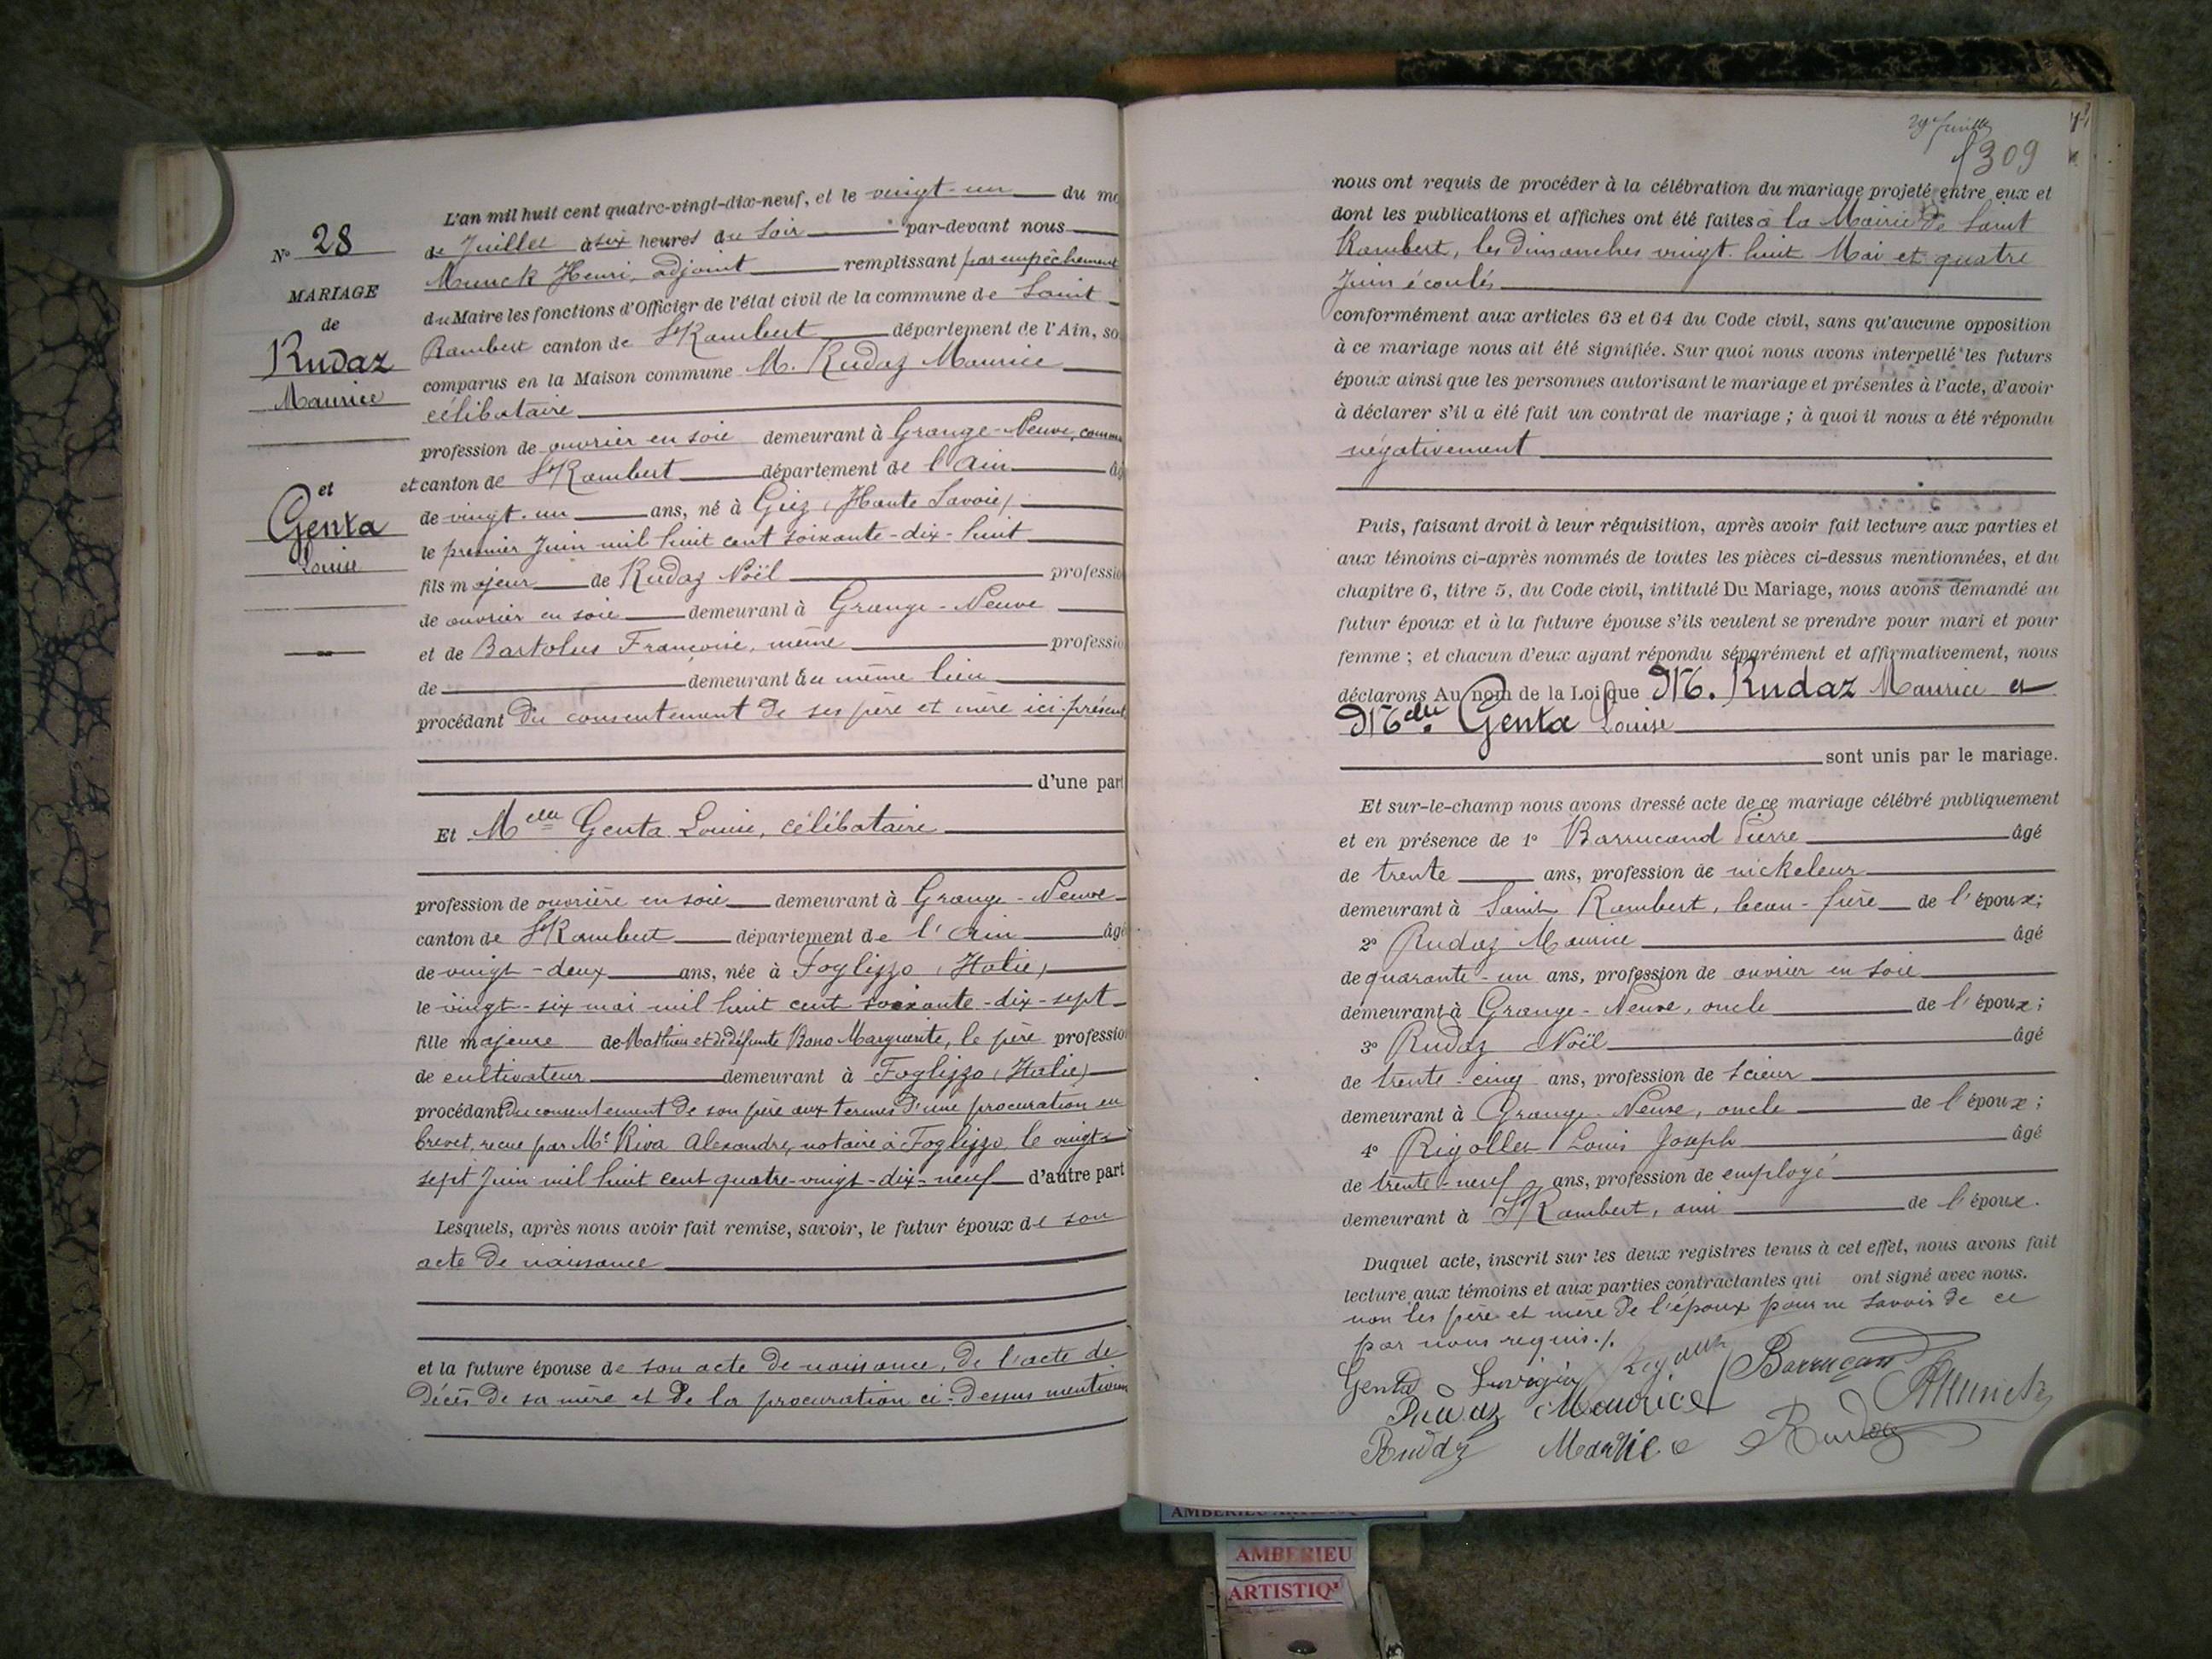 N° 28
MARIAGE
de
Rudaz
Maurice
et
Genta
Louise
L'an mil huit cent quatre-vingt-dix-neuf, et le vingt-un du mo
de Juillet à six heures du soir par-devant nous
Munck Henri, adjoint remplissant par empêchement
du Maire les fonctions d'Officier de l'état civil de la commune de Saint
Rambert canton de St Rambert département de l'Ain, so
comparus en la Maison commune M. Rudaz Maurice
célibataire
profession de ouvrier en soie demeurant à Grange-Neuve, comm
et canton de St Rambert département de l'Ain âg
de vingt-un ans, né à Giez (Haute Savoie)
le premier Juin mil huit cent soixante-dix-huit
fils majeur de Rudaz Noël professio
de ouvrier en soie demeurant à Grange-Neuve
et de Bartolus Françoise, même professio
de demeurant au même lieu
procédant du consentement de ses père et mère ici présent
d'une part
Et Melle Genta Louise, célibataire
profession de ouvrière en soie demeurant à Grange-Neuve
canton de St Rambert département de l'Ain âgé
de vingt-deux ans, née à Foglizzo (Italie)
le vingt-six mai mil huit cent soixante-dix-sept
fille majeure de Mathieu et de défunte Bono Marguerite, le père professio
de cultivateur demeurant à Foglizzo (Italie)
procédant du consentement de son père aux termes d'une procuration en
brevet, reçue par Me Riva Alexandre, notaire à Foglizzo, le vingt-
sept Juin mil huit cent quatre-vingt-dix-neuf d'autre part
Lesquels, après nous avoir fait remise, savoir, le futur époux de son
acte de naissance
et la future épouse de son acte de naissance, de l'acte de
décès de sa mère et de la procuration ci-dessus mention
29 Juillet
309
nous ont requis de procéder à la célébration du mariage projeté entre eux et
dont les publications et affiches ont été faites à la Mairie de Saint
Rambert, les dimanches vingt-huit Mai et quatre
Juin écoulés
conformément aux articles 63 et 64 du Code civil, sans qu'aucune opposition
à ce mariage nous ait été signifiée. Sur quoi nous avons interpellé les futurs
époux ainsi que les personnes autorisant le mariage et présentes à l'acte, d'avoir
à déclarer s'il a été fait un contrat de mariage ; à quoi il nous a été répondu
négativement
Puis, faisant droit à leur réquisition, après avoir fait lecture aux parties et
aux témoins ci-après nommés de toutes les pièces ci-dessus mentionnées, et du
chapitre 6, titre 5, du Code civil, intitulé Du Mariage, nous avons demandé au
futur époux et à la future épouse s'ils veulent se prendre pour mari et pour
femme ; et chacun d'eux ayant répondu séparément et affirmativement, nous
déclarons Au nom de la Loi que M. Rudaz Maurice et
Melle Genta Louise
sont unis par le mariage.
Et sur-le-champ nous avons dressé acte de ce mariage célébré publiquement
et en présence de 1° Barrucand Pierre âgé
de trente ans, profession de nickeleur
demeurant à Saint Rambert, beau-frère de l'époux;
2° Rudaz Maurice âgé
de quarante-un ans, profession de ouvrier en soie
demeurant à Grange-Neuve, oncle de l'époux;
3° Rudaz Noël âgé
de trente-cinq ans, profession de scieur
demeurant à Grange-Neuve, oncle de l'époux;
4° Rigollet Louis Joseph âgé
de trente-neuf ans, profession de employé
demeurant à St Rambert, ami de l'époux.
Duquel acte, inscrit sur les deux registres tenus à cet effet, nous avons fait
lecture aux témoins et aux parties contractantes qui ont signé avec nous.
non les père et mère de l'époux pour ne savoir de ce
par nous requis./.
Genta Luvigia Barrucand
Rudaz Maurice HMunck
Rudaz Maurice Rudaz
AMBERIEU
ARTISTIQ